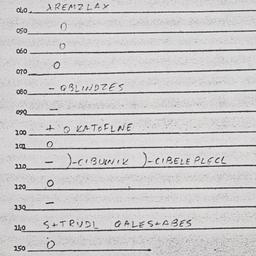 040. XREMZLAX
050 0
060 0
070 0
080 - OBLINDZES
090 -
100 + O KATOFLNE
101 0
110 - )-CIBULNIK )-CIBELEPLSCL
120 0
130 -
140 S+TRUDL OALES+ABES
150 0